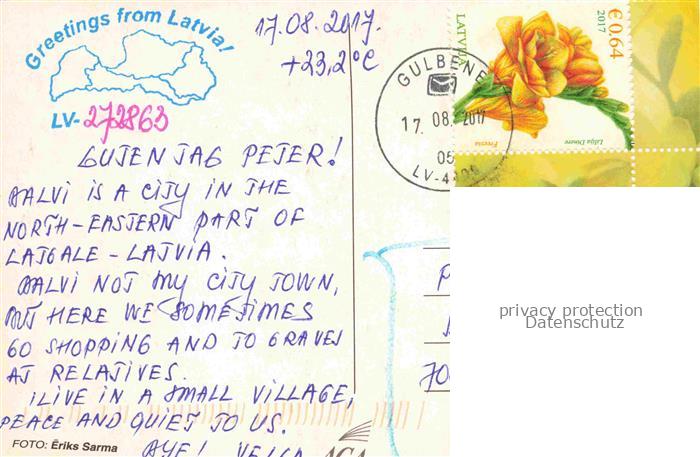 Greetings from Latvia!
LV-272863
17.08.2017.
+23,2°C
LATVIJA
2017
€0.64
Freesia
Līlija Dinere
GULBENE
17. 08. 2017
05
LV-44
GUTEN TAG PETER!
BALVI IS A CITY IN THE
NORTH-EASTERN PART OF
LATGALE - LATVIA.
BALVI NOT MY CITY TOWN,
BUT HERE WE SOMETIMES
GO SHOPPING AND TO GRAVES
AT RELATIVES.
I LIVE IN A SMALL VILLAGE,
PEACE AND QUIET TO US.
FOTO: Ēriks Sarma
privacy protection
Datenschutz